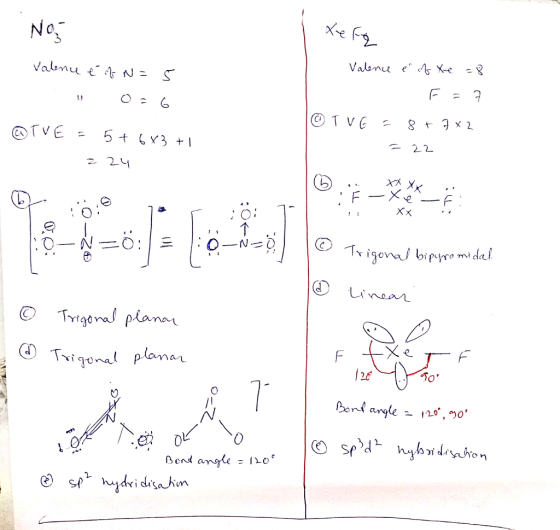 NO₃⁻
Valence e⁻ of N = 5
" O = 6
ⓐ TVE = 5 + 6×3 + 1
= 24
ⓑ
:Ö: ⊖
⊖ :Ö — N = Ö: ≡ :Ö — N = Ö: ⁻
⊕
ⓒ Trigonal planar
ⓓ Trigonal planar
O
N
O O
Bond angle = 120°
ⓔ sp² hydridisation
XeF₂
Valence e⁻ of Xe = 8
F = 7
ⓐ TVE = 8 + 7×2
= 22
ⓑ :F — Xe — F:
ⓒ Trigonal bipyramidal
ⓓ Linear
F — Xe — F
120° 90°
Bond angle = 120°, 90°
ⓔ sp³d² hybridisation